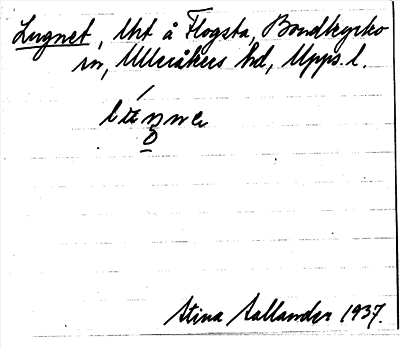 Lugnet, Uht å Flogsta, Bondkyrko
sn, Ulleråkers hd, Upps. l.
Stina Sallander 1937.